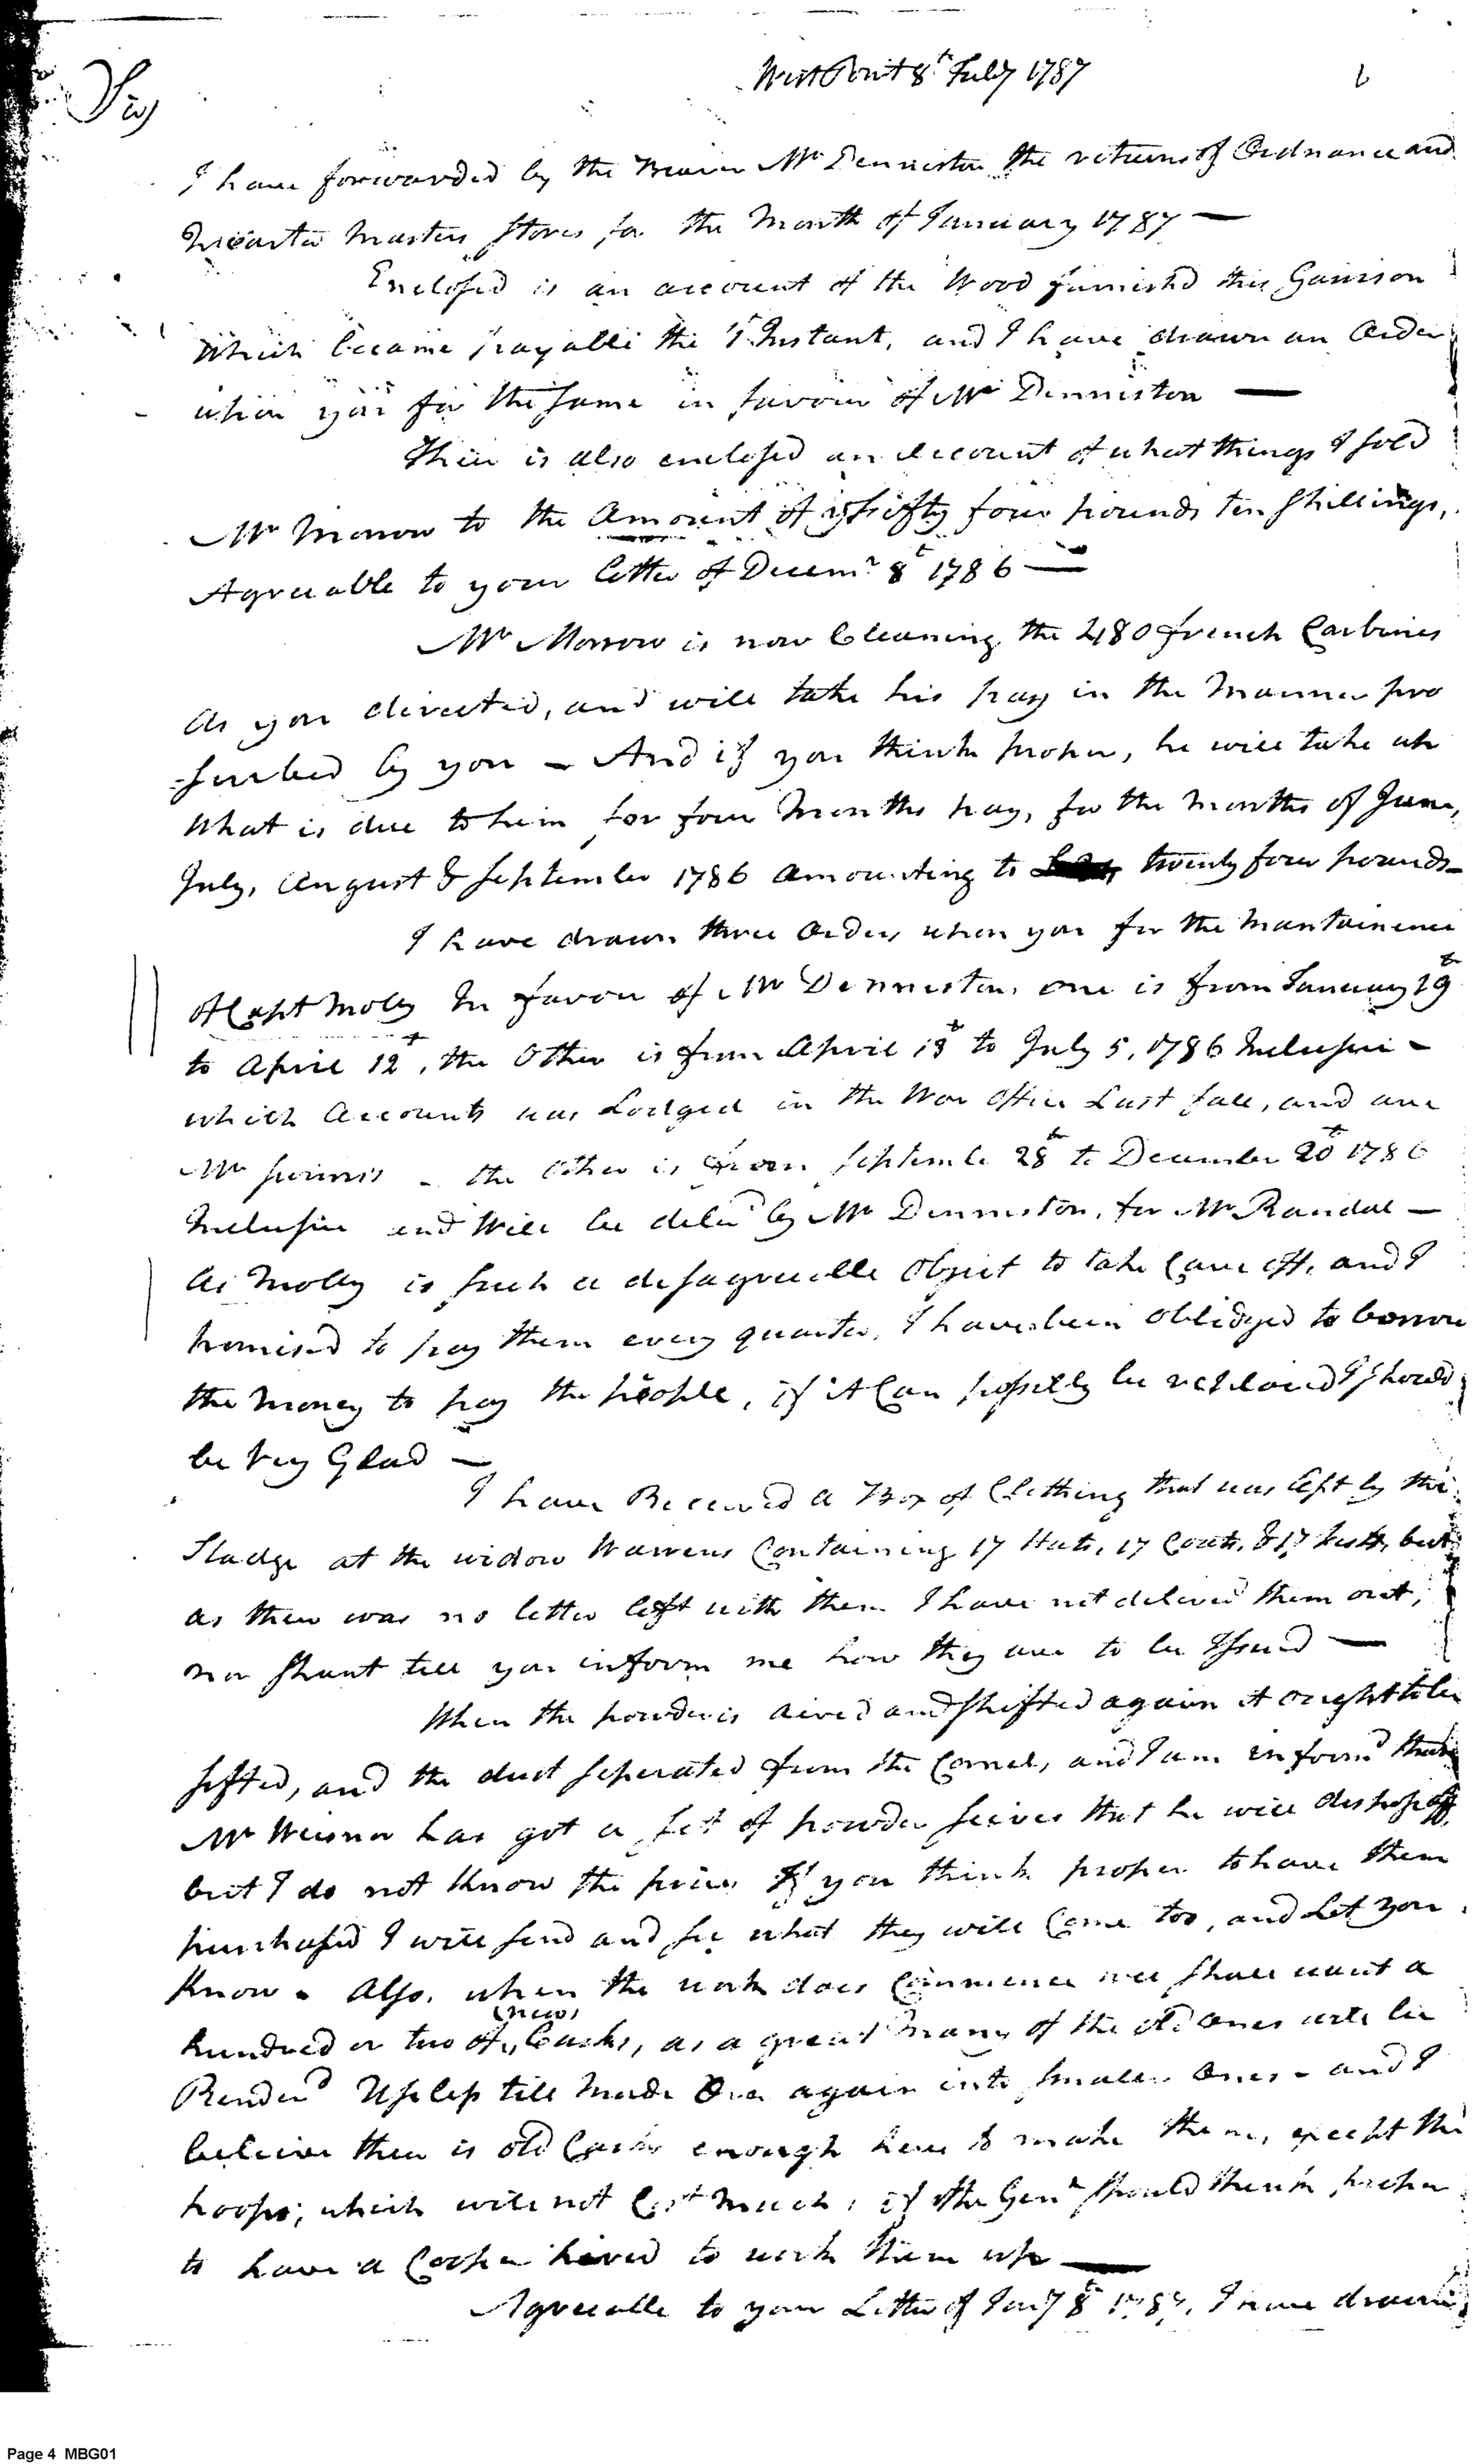 West Point 8t July 1787
Sir
I have forwarded by the Bearer Mr Denniston the returns of Ordnance and
Quarter Masters Stores for the Month of January 1787 —
Enclosed is an account of the Wood furnishd this Garrison
Which became payable the 1t Instant, and I have drawn an Order
upon you for the same in favour of Mr Denniston —
Their is also enclosed an Account of what things I sold
Mr Morrow to the Amount of fifty four pounds ten Shillings,
Agreeable to your letter of Decemr 8t 1786 —
Mr Morrow is now Cleaning the 480 french Carbines
As you directed, and will take his pay in the Manner pre
-scribed by you — And if you think proper, he will take up
What is due to him for four Months pay, for the Months of June,
July, August & September 1786 amounting to twenty four pounds —
I have drawn three Orders upon you for the Maintainence
of Capt Molly In favour of Mr Denniston, one is from January 19t
to April 12t, the Other is from April 13t to July 5, 1786 Inclusive —
which Accounts was Lodged in the War Office Last fall, and are
Mr — the Other is from September 28t to December 20t 1786
Inclusive and Will be deliv'd by Mr Denniston, for Mr Randal —
As Molly is such a disagreeable Object to take Care off, and I
promised to pay them every quarter, I have been Oblidged to borrow
the Money to pay the people, if it Can possibly be I should
be Very Glad —
I have Received a Box of Clothing that was left by the
Sladge at the widow Warrens Containing 17 Hats, 17 Coats, & 17 Vests, but
as there was no letter left with them I have not deliverd them out,
nor shant till you inform me how they are to be Issued —
When the powder is aired and shifted again it ought to be
sifted, and the dust seperated from the Cornel, and I am informd that
Mr Weisner has got a set of powder seives that he will dispose off,
but I do not know the price, If you think proper to have them
purchased I will send and see what they will Come too, and Let you
Know — Also, when the work does Commence wee shall want a
(new)
hundred or two of Casks, as a great many of the old Ones will be
Renderd Useless till Made Over again into smaller Ones — and I
beleive there is old Casks enough here to make them, except the
hoops; which will not Cost Much, if the Genl should think proper
to have a Cooper hired to work them up —
Agreeable to your Letter of Jany 8t 1787, I have drawn
Page 4 MBG01